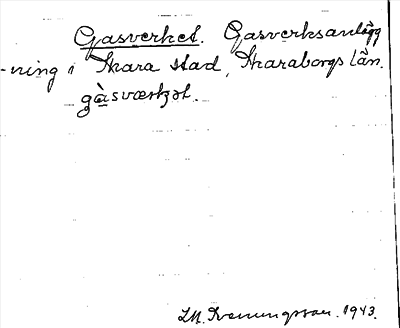 Gasverket. Gasverksanlägg
-ning i Skara stad, Skaraborgs län.
gàsværkət.
1943.